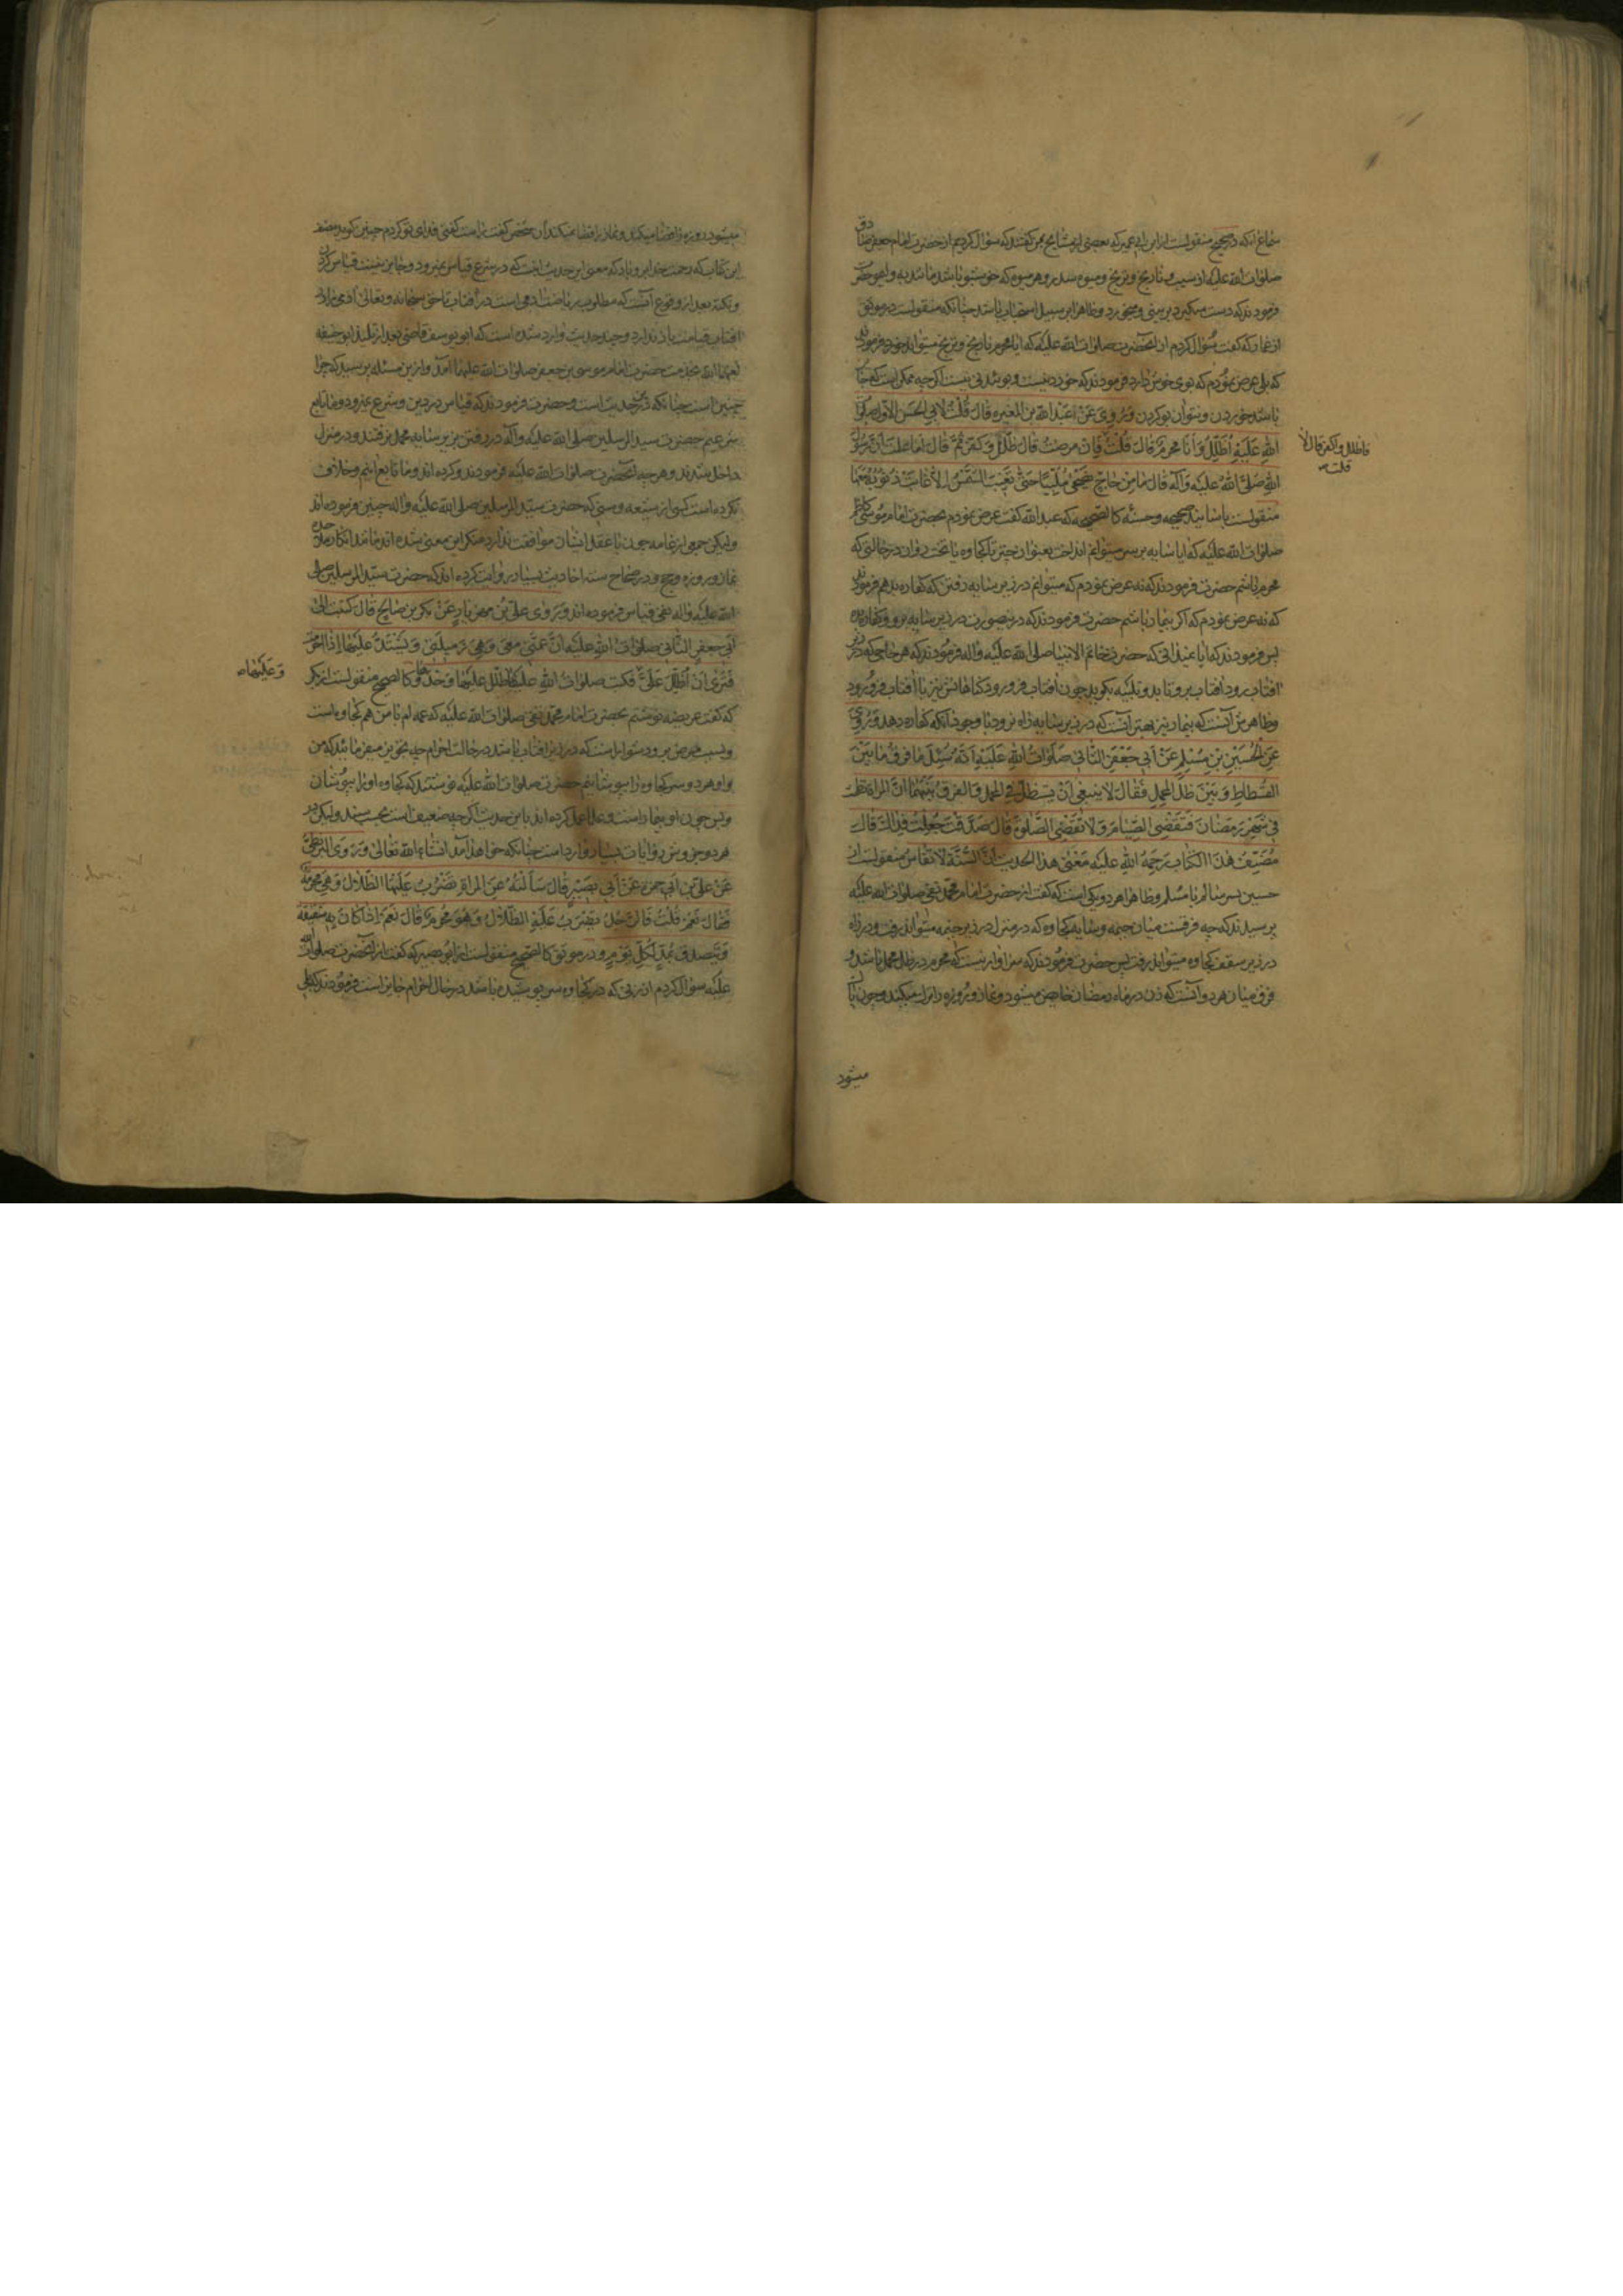 سماعا و آنکه در صحیح منقولست از ابن ابی عمیر که بعضی از مشایخ بمن گفتند که سؤال کردیم از حضرت امام جعفر صادق
صلوات الله علیه از سیب و نارنج و ترنج و میوه سدر و هر میوه که خوشبو باشد مانند به و لیمو حضرت
فرمودند که دست میگیرد بر بینی و میخورد و ظاهرا بر سبیل استحباب باشد چنانکه منقولست در موثق
از عمار که گفت سؤال کردم از آنحضرت صلوات الله علیه که ایا محرم نارنج و ترنج میتواند خورد فرمودند
که بلی عرض نمودم که بوی خوش دارد فرمودند که خوردنیست و بوئیدنی نیست اگر چه ممکن است که
باشد خوردن و نتوان بو کردن و روی عن عبد الله بن المغیره قال قلت لابی الحسن الاول صلوات
الله علیه اظلل و انا محرم قال قلت فان مرضت قال ظلل و کفر ثم قال اما علمت ان رسول
الله صلی الله علیه و آله قال ما من حاج یضحی ملبیا حتی تغیب الشمس الا غابت ذنوبه معها
منقولست باسانید صحیحه و حسنه کالصحیحه که عبد الله گفت عرض نمودم بحضرت امام موسی کاظم
صلوات الله علیه که ایا سایه بر سر میتوانم انداخت بعنوان چتر یا کجاوه یا تخت روان در حالتی که
محرم باشم حضرت فرمودند که نه عرض نمودم که میتوانم در زیر سایه رفتن که کفاره بدهم فرمودند
که نه عرض نمودم که اگر بیمار باشم حضرت فرمودند که درینصورت در زیر سایه برو و کفاره بده
پس فرمودند که ایا نمیدانی که حضرت خاتم الانبیا صلی الله علیه و اله فرمودند که هر حاجی که در
افتاب رود افتاب برو تابد و تلبیه بگوید چون افتاب فرو رود گناهانش نیز با افتاب فرو رود
و ظاهرش آنست که بیمار نیز بهتر آنست که در زیر سایه راه نرود با وجود آنکه کفاره دهد و روی
عن الحسین بن مسلم عن ابی جعفر الثانی صلوات الله علیه انه سئل ما فرق ما بین
الفسطاط و بین ظل المحمل فقال لا ینبغی ان یستظل فی المحمل و الفرق بینهما ان المراة تطمث
فی شهر رمضان فتقضی الصیام و لا تقضی الصلوة قال صدقت جعلت فداک قال
مصنف هذا الکتاب رحمة الله علیه معنی هذا الحدیث ان السنة لا تقاس منقولست از
حسین پسر سالم یا مسلم و ظاهرا هر دو یکی است که گفت از حضرت امام محمد تقی صلوات الله علیه
پرسیدند که چه فرقست میان خیمه و سایه کجاوه که در منزل در زیر خیمه میتواند رفت و در راه
در زیر سقف کجاوه میتواند رفت پس حضرت فرمودند که سزاوار نیست که محرم در ظل محمل باشد و
فرق میان هر دو آنست که زن در ماه رمضان حایض میشود و نماز و روزه را ترک میکند و چون پاک
میشود
فاظلل و اکفر قال لا
قلت
میشود روزه را قضا میکند و نماز را قضا نمیکند آن شخص گفت راست گفتی فدای تو گردم چنین گوید مصنف
این کتاب که رحمت خدا برو باد که معنی این حدیث انست که در شرع قیاس نمیرود و جایز نیست قیاس کردن
و نکته بعد از وقوع آنست که مطلوب ریاضت ادمی است در افتاب تا حق سبحانه و تعالی آدمی را از
افتاب قیامت باز ندارد و چند حدیث وارد شده است که ابو یوسف قاضی بعد از تلمیذ ابو حنیفه
لعنهما الله بخدمت حضرت امام موسی بن جعفر صلوات الله علیهما آمد و ازین مسئله پرسید که چرا
چنین است چنانکه درین حدیث است و حضرت فرمودند که قیاس در دین و شرع نمیرود و ما تابع
شرعیم حضرت سید المرسلین صلی الله علیه و آله در رفتن بزیر سایه محمل نرفتند و در منزل
داخل شدند و هر چه آنحضرت صلوات الله علیه فرمودند و کرده اند و ما تابع اینیم و خلاف
نکرده است کسی از شیعه و سنی که حضرت سید المرسلین صلی الله علیه و اله چنین فرموده اند
ولیکن جمعی از عامه چون با عقل ایشان موافقت ندارد منکر این معنی شده اند مانند انکار
نماز و روزه و حج و در صحاح سته احادیث بسیار روایت کرده اند که حضرت سید المرسلین صلی
الله علیه و اله نفی قیاس فرموده اند و روی علی بن مهزیار عن بکر بن صالح قال کتبت الی
ابی جعفر الثانی صلوات الله علیه ان عمتی معی و هی زمیلتی و یشتد علیها اذا احرمت
فتری ان اظلل علی فکتب صلوات الله علیه ظلل علیها وحدها و کالصحیح منقولست از بکر
که گفت عریضه نوشتم بحضرت امام محمد تقی صلوات الله علیه که عمه ام با من هم کجاوه است
و بسبب مرض برو دشوار است که در زیر افتاب باشد در حالت احرام چه تجویز میفرمایند که من
بر او هر دو سر کجاوه را بپوشانیم حضرت صلوات الله علیه نوشتند که کجاوه او را بپوشان
و بس چون او بیمار است و علما عمل کرده اند باین حدیث اگر چه ضعیف است بحسب سند ولیکن در
هر دو جزوش روایات بسیار وارد است چنانکه خواهد آمد انشاء الله تعالی و روی البزنطی
عن علی بن ابی حمزه عن ابی بصیر قال سالته عن المراة تضرب علیها الظلال و هی محرمة
فقال نعم قلت فالرجل یضرب علیه الظلال و هو محرم قال نعم اذا کان به شقیقة
و یتصدق بمد لکل یوم و در موثق کالصحیح منقولست از ابو بصیر که گفت از آنحضرت صلوات الله
علیه سؤال کردم از زنی که در کجاوه سر پوشیده باشد در حال احرام جایز است فرمودند که بلی
و علیها